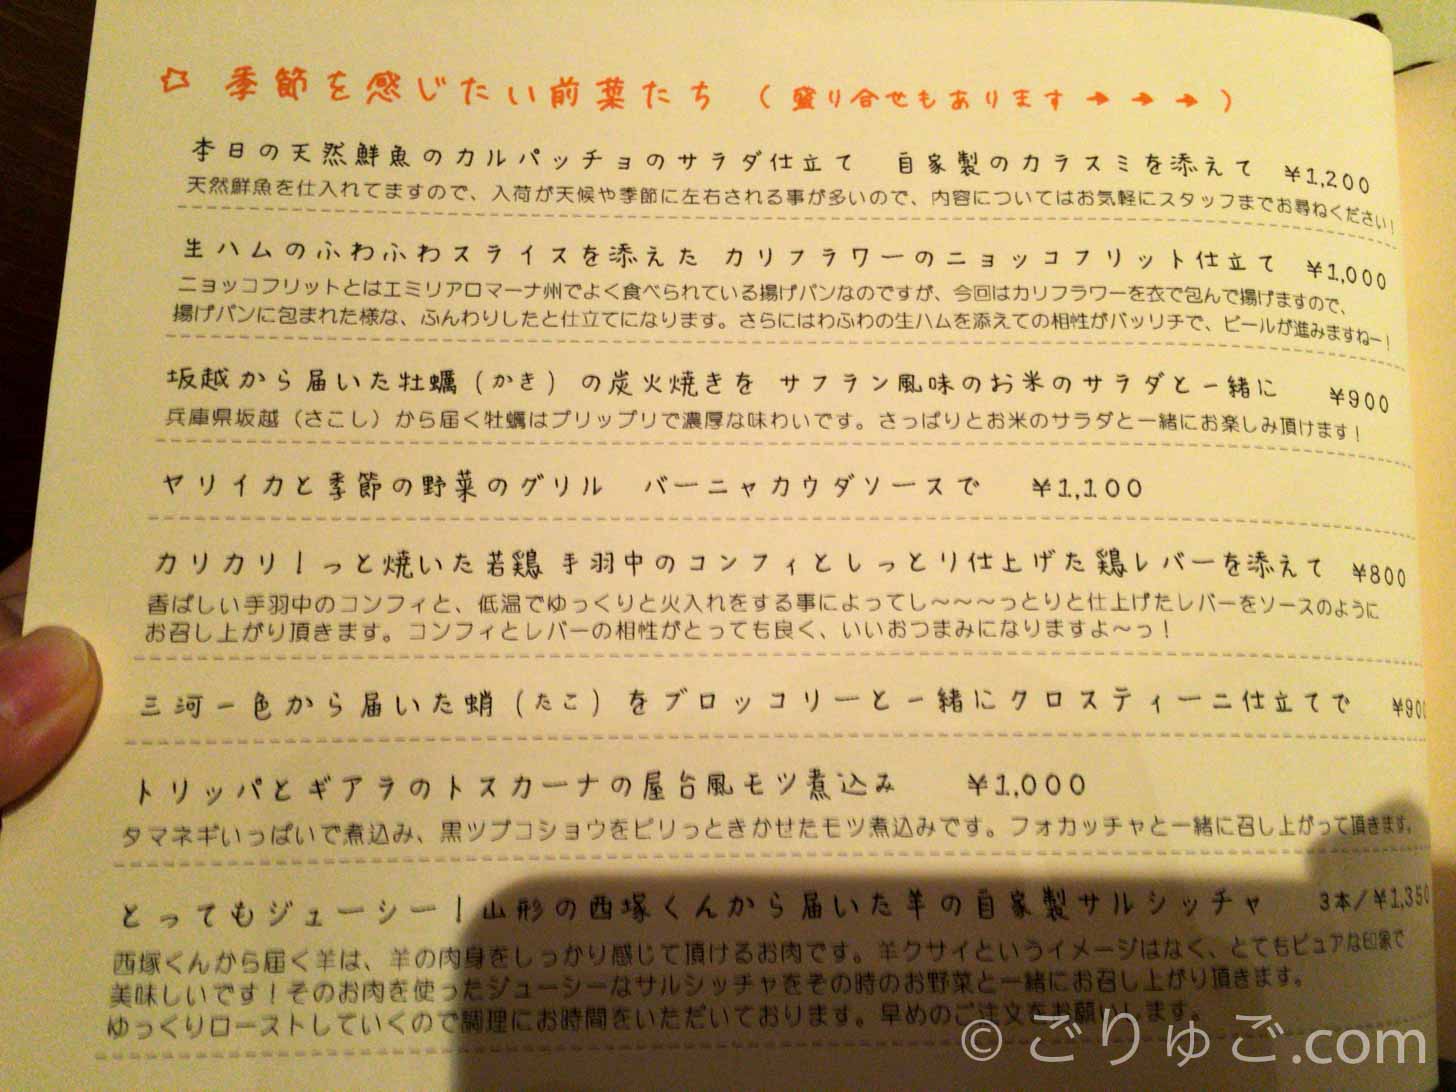 ☆ 季節を感じたい前菜たち （盛り合せもあります→→→）
本日の天然鮮魚のカルパッチョのサラダ仕立て 自家製のカラスミを添えて ¥1,200
天然鮮魚を仕入れてますので、入荷が天候や季節に左右される事が多いので、内容についてはお気軽にスタッフまでお尋ねください！
生ハムのふわふわスライスを添えた カリフラワーのニョッコフリット仕立て ¥1,000
ニョッコフリットとはエミリアロマーナ州でよく食べられている揚げパンなのですが、今回はカリフラワーを衣で包んで揚げますので、
揚げパンに包まれた様な、ふんわりしたと仕立てになります。さらにはわふわの生ハムを添えての相性がバッチリで、ビールが進みますねー！
坂越から届いた牡蠣（かき）の炭火焼きを サフラン風味のお米のサラダと一緒に ¥900
兵庫県坂越（さこし）から届く牡蠣はプリップリで濃厚な味わいです。さっぱりとお米のサラダと一緒にお楽しみ頂けます！
ヤリイカと季節の野菜のグリル バーニャカウダソースで ¥1,100
カリカリ！っと焼いた若鶏手羽中のコンフィとしっとり仕上げた鶏レバーを添えて ¥800
香ばしい手羽中のコンフィと、低温でゆっくりと火入れをする事によってし〜〜〜っとりと仕上げたレバーをソースのように
お召し上がり頂きます。コンフィとレバーの相性がとっても良く、いいおつまみになりますよ〜っ！
三河一色から届いた蛸（たこ）をブロッコリーと一緒にクロスティーニ仕立てで ¥900
トリッパとギアラのトスカーナの屋台風モツ煮込み ¥1,000
タマネギいっぱいで煮込み、黒ツブコショウをピリっときかせたモツ煮込みです。フォカッチャと一緒に召し上がって頂きます。
とってもジューシー！山形の西塚くんから届いた羊の自家製サルシッチャ 3本／¥1,350
西塚くんから届く羊は、羊の肉身をしっかり感じて頂けるお肉です。羊クサイというイメージはなく、とてもピュアな印象で
美味しいです！そのお肉を使ったジューシーなサルシッチャをその時のお野菜と一緒にお召し上がり頂きます。
ゆっくりローストしていくので調理にお時間をいただいております。早めのご注文をお願いします。
© ごりゅご.com